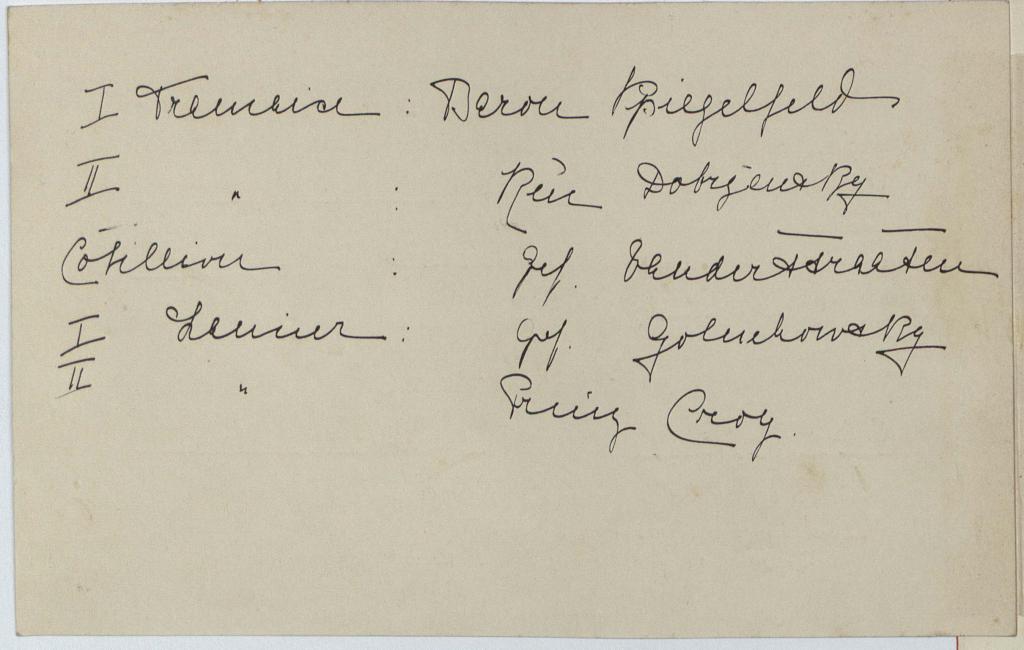 I Francaise : Baron Spiegelfeld
II " : Dobrzensky
Cotillion : Gf. Vanderstraaten
I Lancier : Gf. Goluchowsky
II " Prinz Croy.